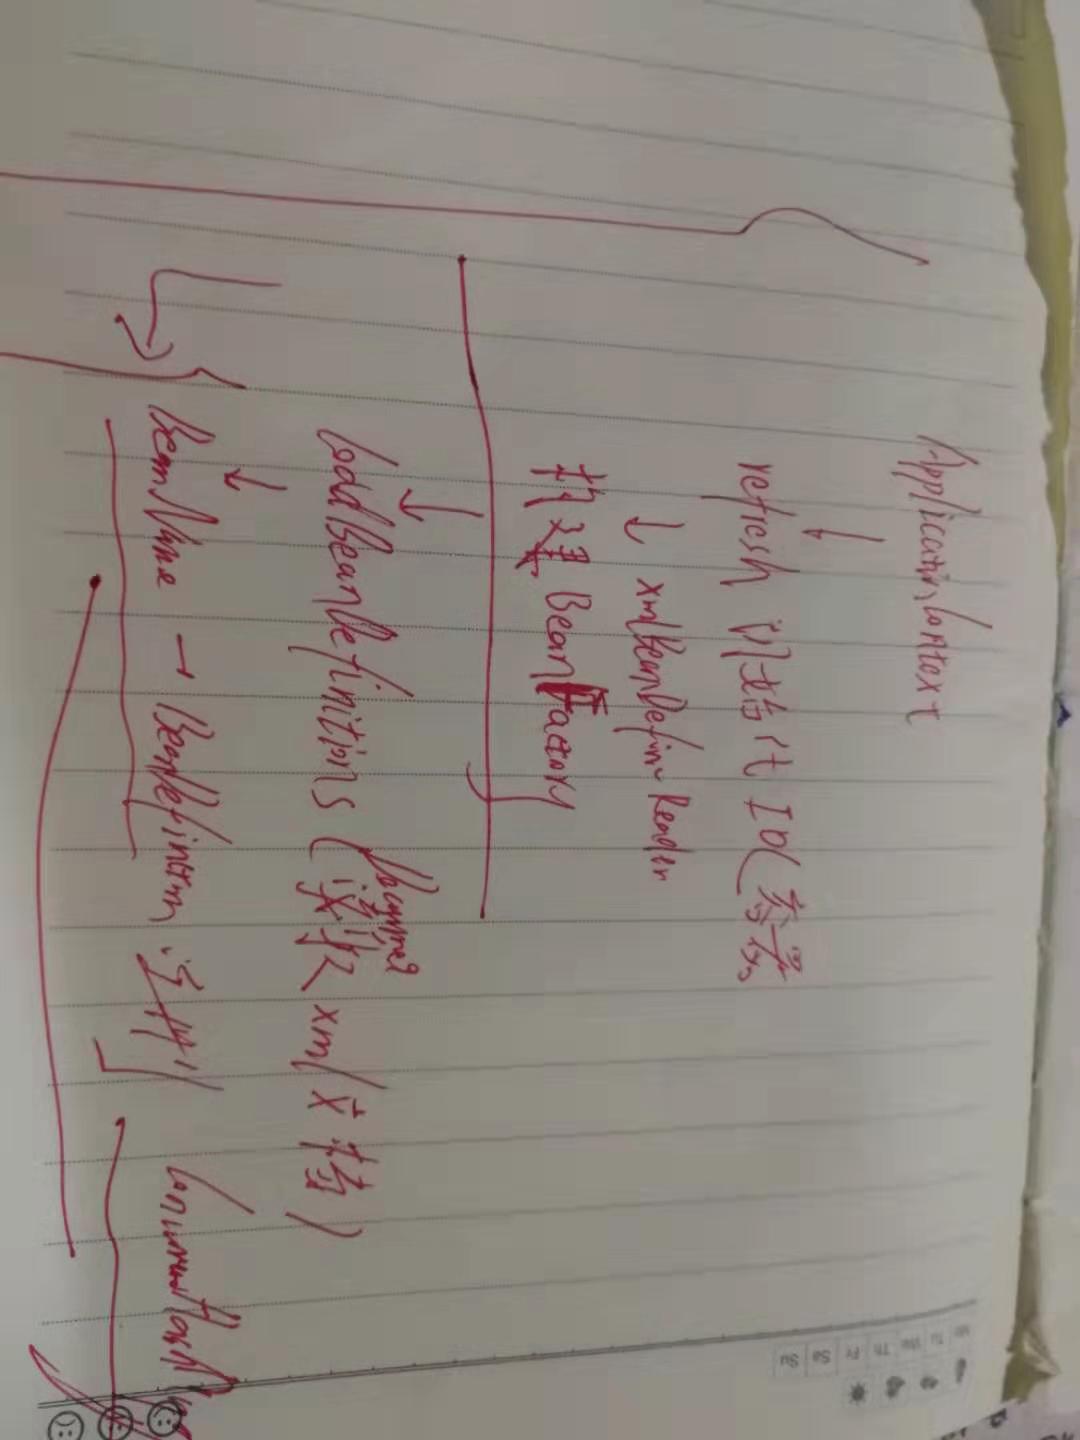 ApplicationContext
refresh 初始化 IOC 容器
xmlBeanDefin Reader
构建 BeanFactory
Document
loadBeanDefinitions (读取 xml 文档)
BeanName → BeanDefinition 注册 ConcurrentHashMap
Th
Fr
Sa
Su